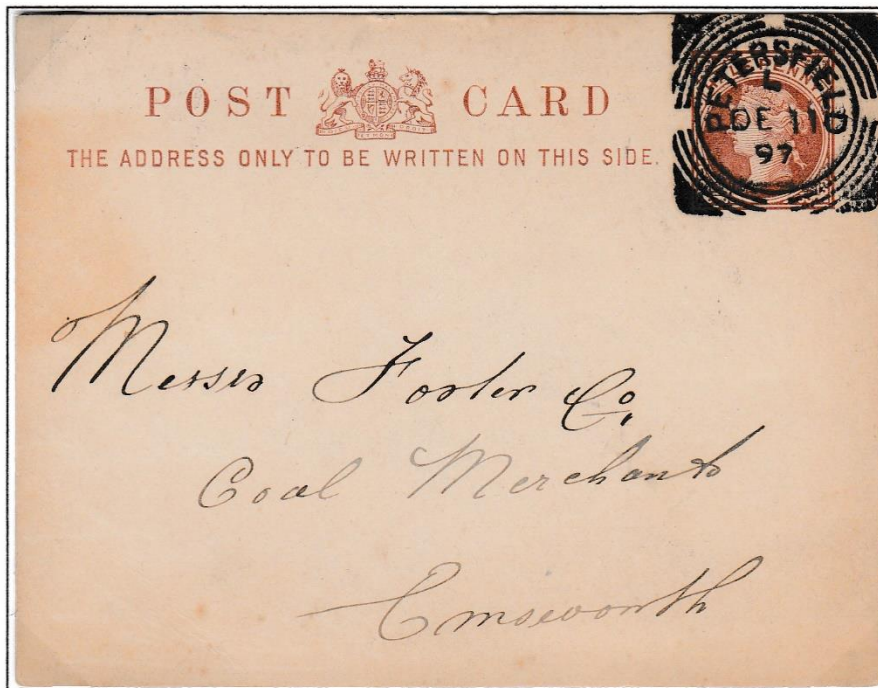 POST CARD
THE ADDRESS ONLY TO BE WRITTEN ON THIS SIDE.
PETERSFIELD
L
DE 11
97
Messrs Foster Co.
Coal Merchants
Emsworth